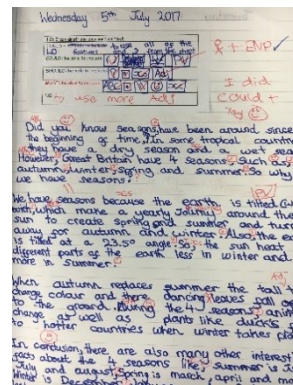 Wednesday 5th July 2017
LO
to use all of the
features
and 2 from the
use more Adj
P + ENP
I did
could +
Did you know seasons have been around since
the beginning of time, In some tropical countr
they have a dry season and a wet sea
However, Great Britain have 4 seasons. Such as
autumn, winter, spring and summer. So why
we have seasons?
We have seasons because the earth is tilted (w
earth, which make a yearly journey around the
sun to create spring and summer and turn
away for autumn and winter. Also, the ea
is tilted at a 23.5° angle. So the sun heat
different parts of the earth less in winter and
more in summer.
When autumn replaces summer the tall
change colour and there dancing leaves fall o
to the ground. During the 4 seasons, anim
change as well as plants like ducks
to hotter countries when winter takes pla
In conclusion, there are also many other interest
facts about the 4 seasons like, summer is Ju
July and august, Spring is march, april and m
Winter is Decem